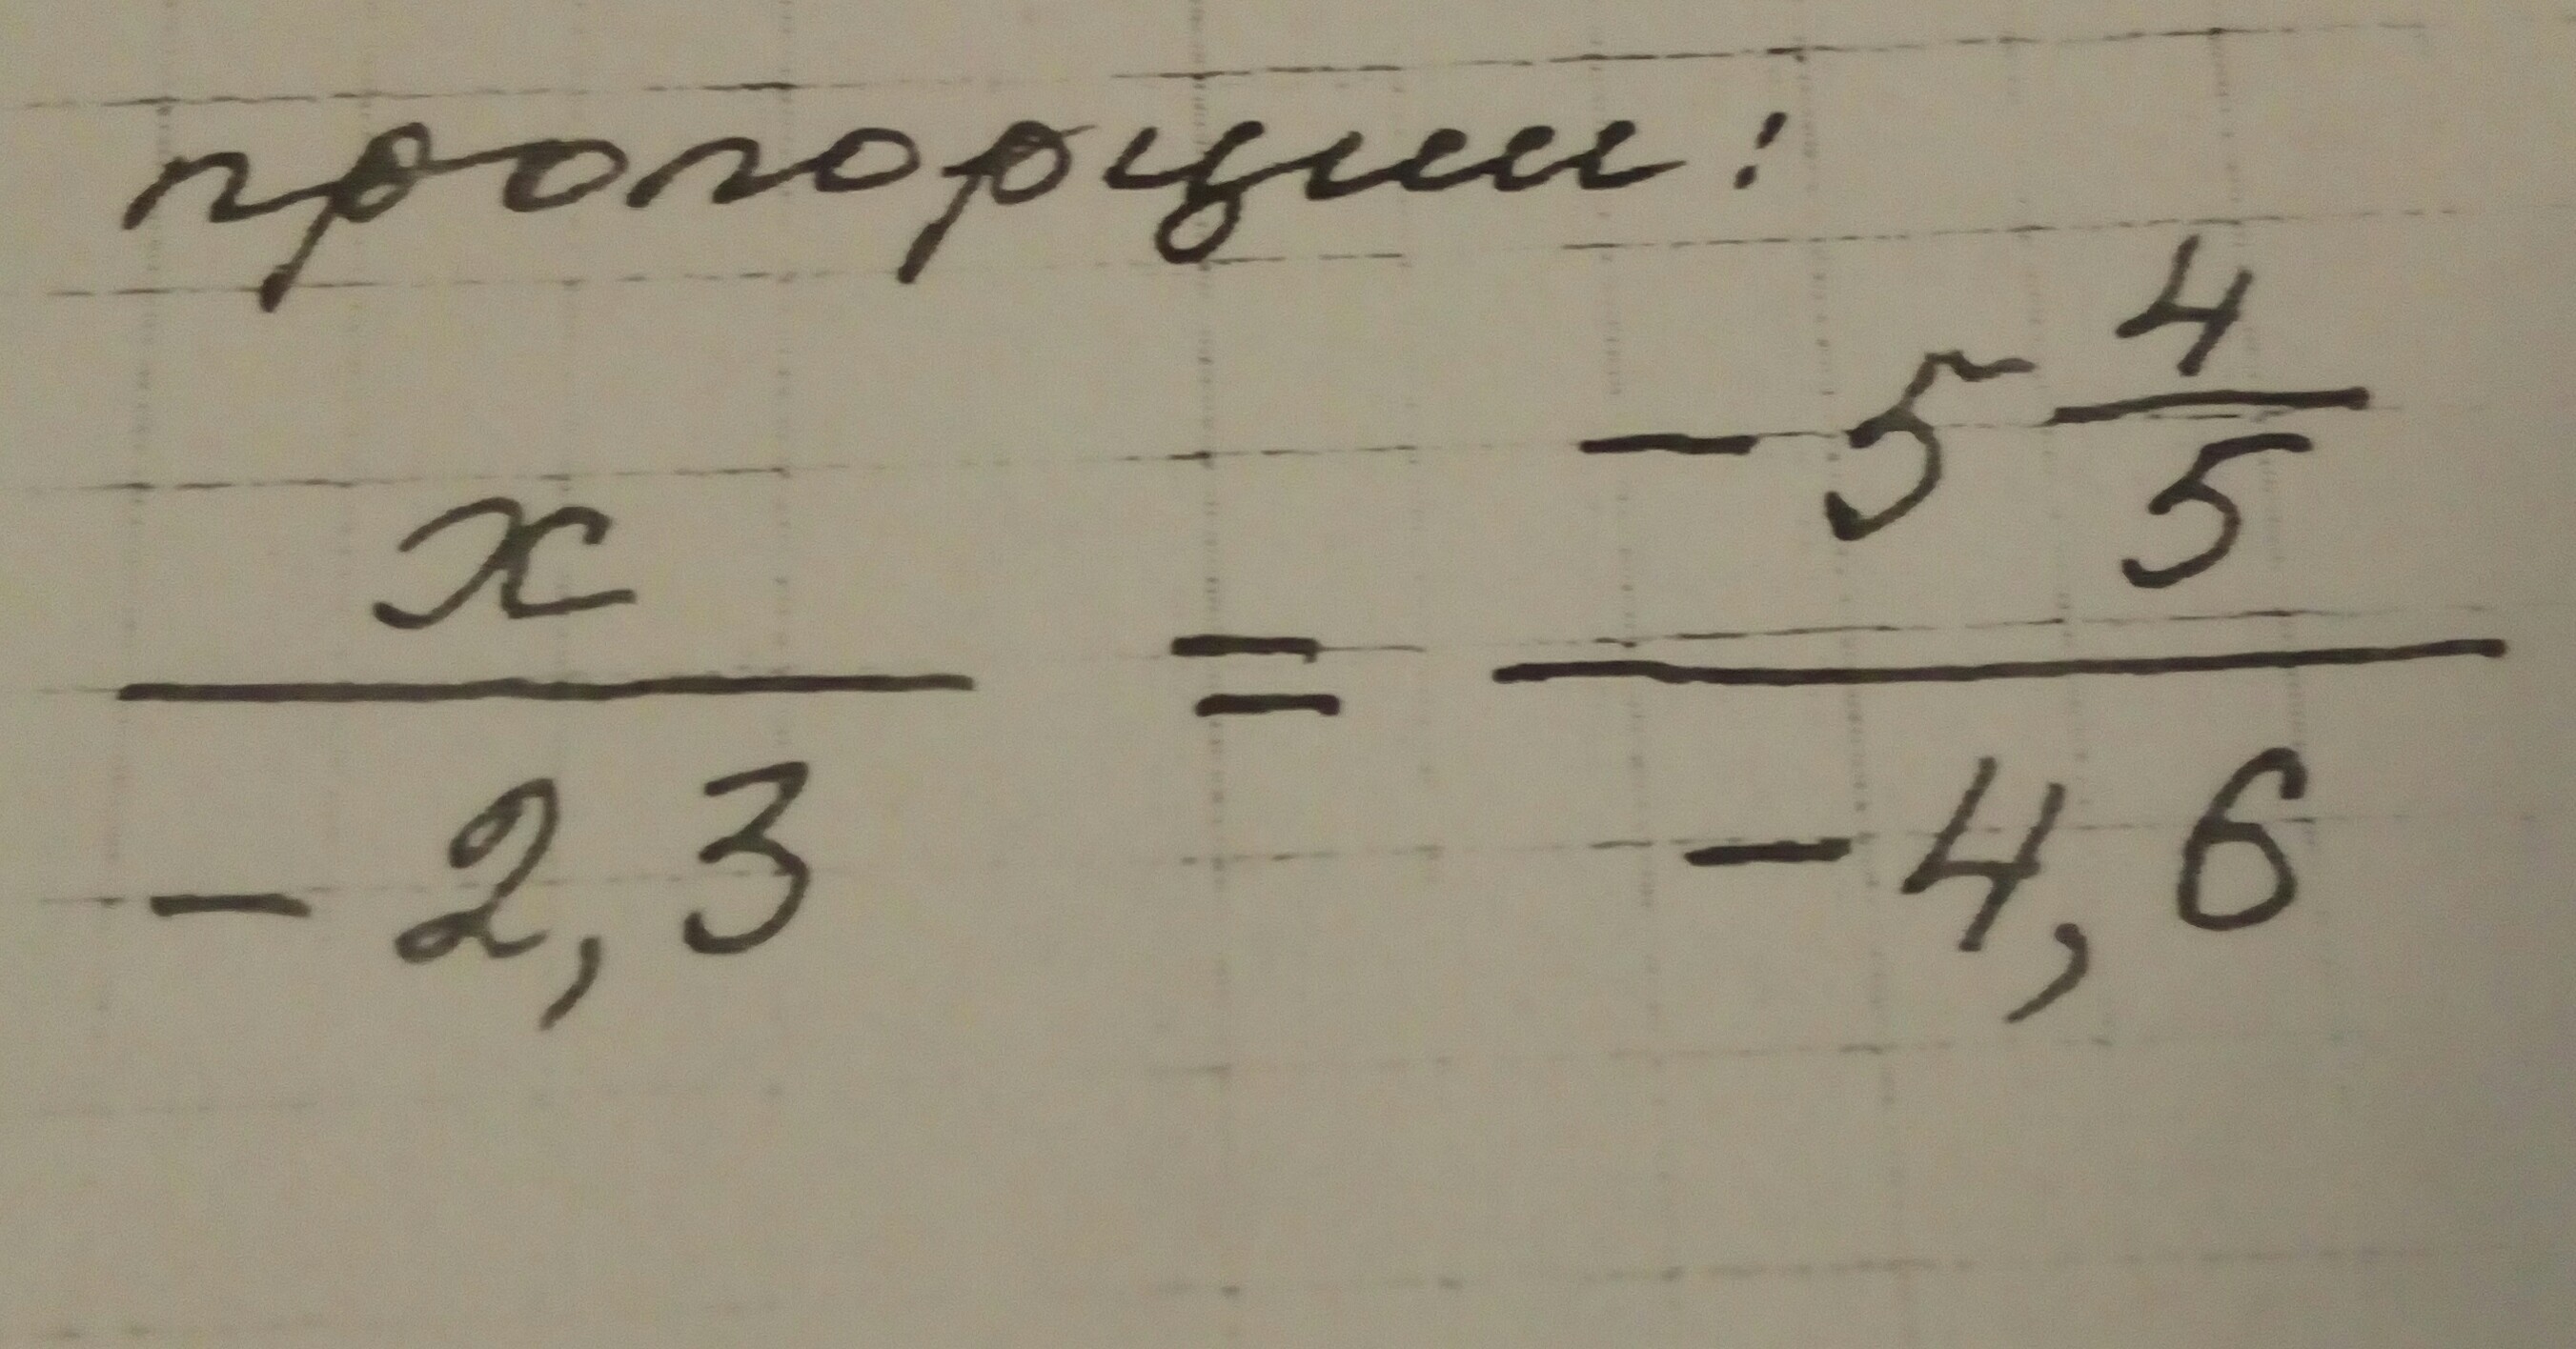 пропорции:
x / -2,3 = -5 4/5 / -4,6